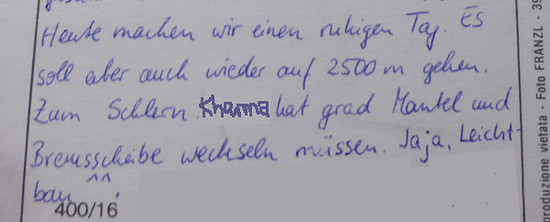 Heute machen wir einen ruhigen Tag. Es
soll aber auch wieder auf 2500 m gehen.
Zum Schlern. Khamma hat grad Mantel und
Bremsscheibe wechseln müssen. Jaja, Leicht-
bau ^^.
400/16
produzione vietata - Foto FRANZL - 39